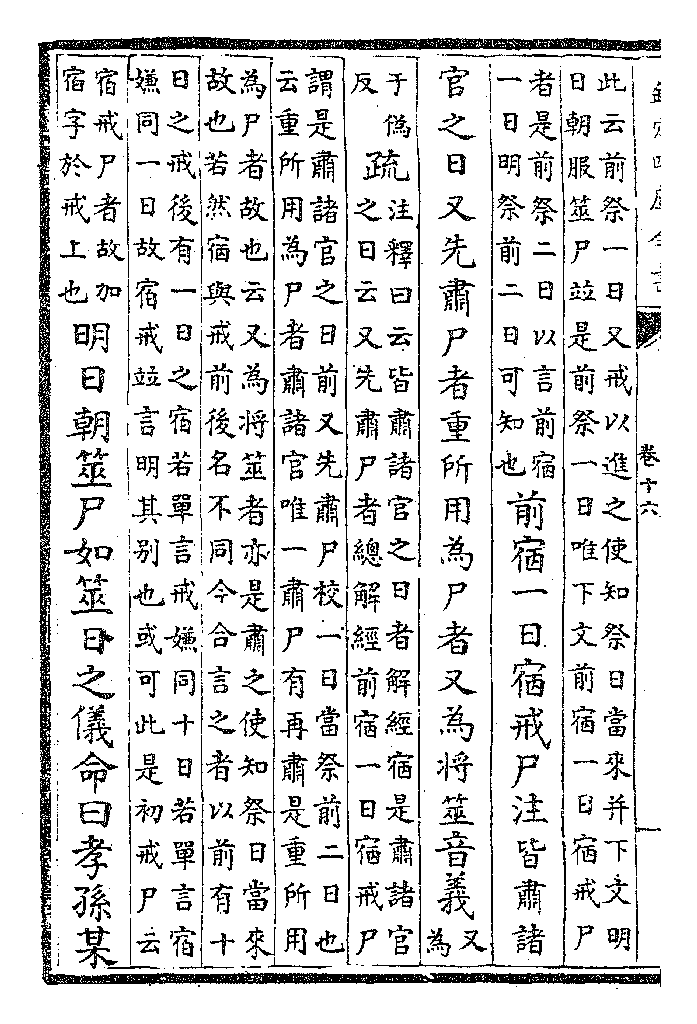 欽定四庫全書
卷十六
此云前祭一日又戒以進之使知祭日當來并下文明
日朝服筮尸竝是前祭一日唯下文前宿一日宿戒尸
者是前祭二日以言前宿
一日明祭前二日可知也
前宿一日宿戒尸注皆肅諸
官之日又先肅尸者重所用為尸者又為將筮音義
又為
于偽反
疏
注釋曰云皆肅諸官之日者解經宿是肅諸官
之日云又先肅尸者總解經前宿一日宿戒尸
謂是肅諸官之日前又先肅尸校一日當祭前二日也
云重所用為尸者肅諸官唯一肅尸有再肅是重所用
為尸者故也云又為將筮者亦是肅之使知祭日當來
故也若然宿與戒前後名不同今合言之者以前有十
日之戒後有一日之宿若單言戒嫌同十日若單言宿
嫌同一日故宿戒竝言明其别也或可此是初戒尸云
宿戒尸者故加
宿字於戒上也
明日朝筮尸如筮日之儀命曰孝孫某